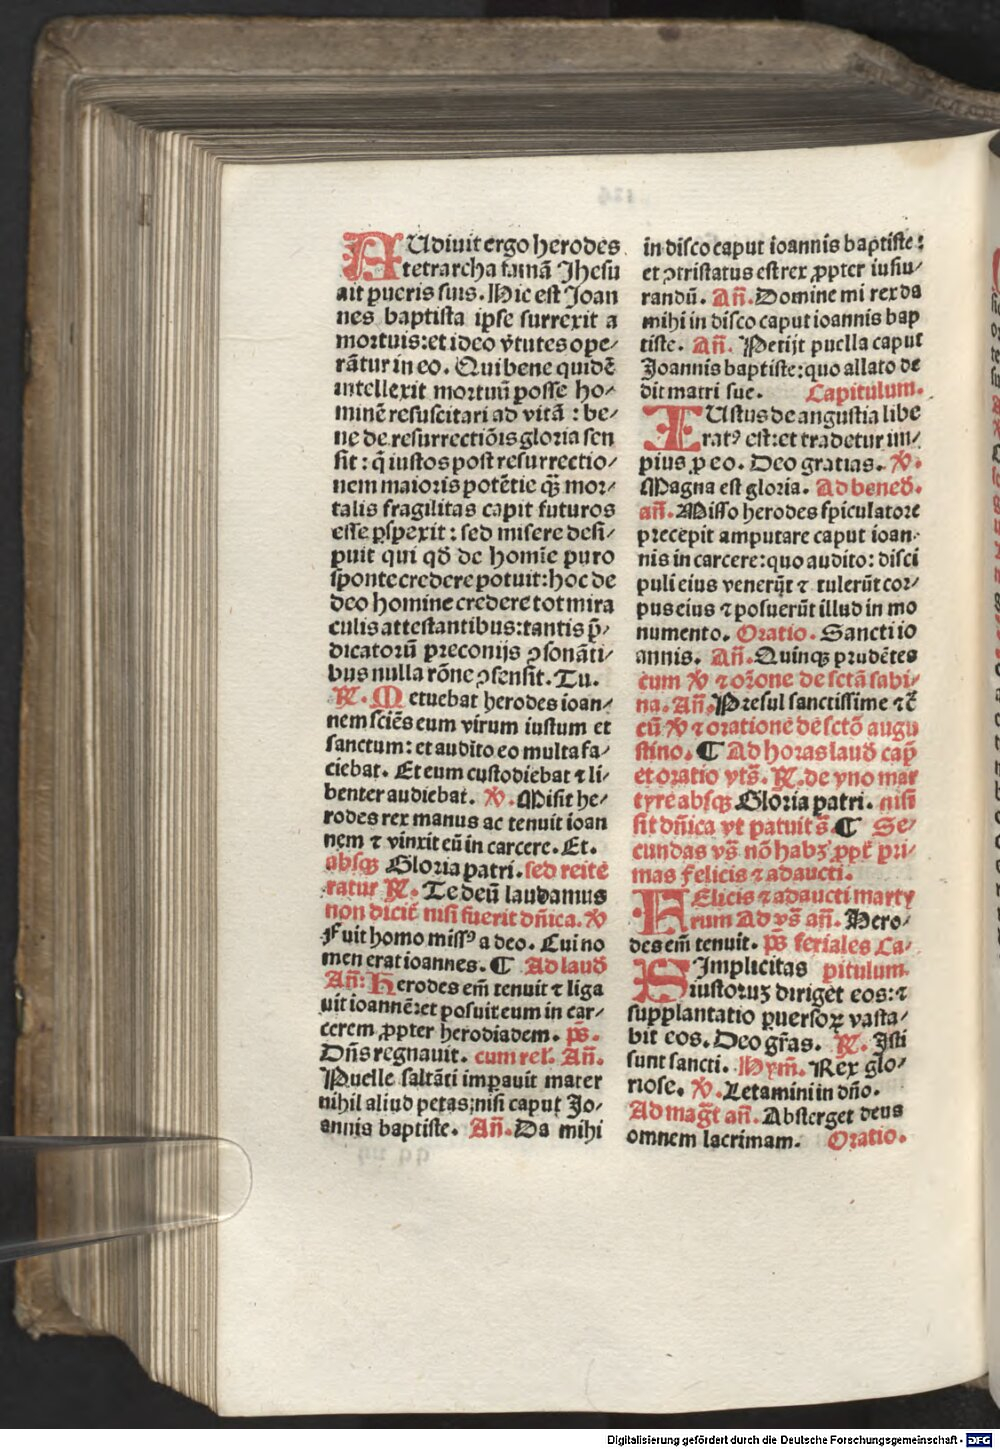 AUdiuit ergo herodes
tetrarcha famā Jhesu
ait pueris suis. Hic est Joan
nes baptista ipse surrexit a
mortuis: et ideo v̄tutes ope⸗
rātur in eo. Qui bene quidē
intellexit mortuū posse ho⸗
minē resuscitari ad vitā : be⸗
ne de resurrectiōis gloria sen
sit : q̄ iustos post resurrectio⸗
nem maioris potētie qꝫ mor⸗
talis fragilitas capit futuros
esse ꝑspexit : sed misere desi⸗
puit qui qđ de homīe puro
sponte credere potuit: hoc de
deo homine credere tot mira
culis attestantibus: tantis p̄⸗
dicatorū preconijs ꝯsonāti⸗
bus nulla rōne ꝯsensit. Tu.
℟. Metuebat herodes ioan⸗
nem sciēs eum virum iustum et
sanctum: et audito eo multa fa⸗
ciebat. Et eum custodiebat ⁊ li⸗
benter audiebat. ℣. Misit he⸗
rodes rex manus ac tenuit ioan
nem ⁊ vinxit eū in carcere. Et.
absqꝫ Gloria patri. sed reite
ratur ℟. Te deū laudamus
non dicit̄ nisi fuerit dn̄ica. ℣
Fuit homo missꝰ a deo. Cui no
men erat ioannes. ¶ Ad laud̄
An̄: Herodes em̄ tenuit ⁊ liga
uit ioannē: et posuit eum in car⸗
cerem ꝓpter herodiadem. p̄s.
Dn̄s regnauit. cum rel̄. An̄.
Puelle saltāti imꝑauit mater
nihil aliud petas: nisi caput Jo⸗
annis baptiste. An̄. Da mihi
in disco caput ioannis baptiste:
et ꝯtristatus est rex ꝓpter iusiu⸗
randū. An̄. Domine mi rex da
mihi in disco caput ioannis bap
tiste. An̄. Petijt puella caput
Joannis baptiste: quo allato de
dit matri sue. Capitulum.
IUstus de angustia libe
ratꝰ est: et tradetur im⸗
pius ꝑ eo. Deo gratias. ℣.
Magna est gloria. Ad bened̄.
an̄. Misso herodes spiculatore
precepit amputare caput ioan⸗
nis in carcere: quo audito: disci
puli eius venerūt ⁊ tulerūt cor⸗
pus eius ⁊ posuerūt illud in mo
numento. Oratio. Sancti io
annis. An̄. Quinqꝫ prudētes
cum ℣ ⁊ orōne de sctā sabi⸗
na. An̄. Presul sanctissime ⁊c̄
cū ℣ ⁊ oratione de sctō augu
stino. ¶ Ad horas laud̄ cap̄
et oratio vts̄. ℟. de vno mar
tyre absqꝫ Gloria patri. nisi
sit dn̄ica vt patuit s̄. ¶ Se⸗
cundas vs̄ nō habꝫ ꝓpt̄ pri⸗
mas felicis ⁊ adaucti.
FElicis ⁊ adaucti marty
rum Ad vs̄ an̄. Hero⸗
des em̄ tenuit. p̄s feriales Ca⸗
SImplicitas pitulum.
iustoruꝫ diriget eos: ⁊
supplantatio ꝑuersoꝝ vasta⸗
bit eos. Deo gr̄as. ℟. Isti
sunt sancti. Hym̄. Rex glo⸗
riose. ℣. Letamini in dn̄o.
Ad maḡt an̄. Absterget deus
omnem lacrimam. Oratio.
Digitalisierung gefördert durch die Deutsche Forschungsgemeinschaft - DFG